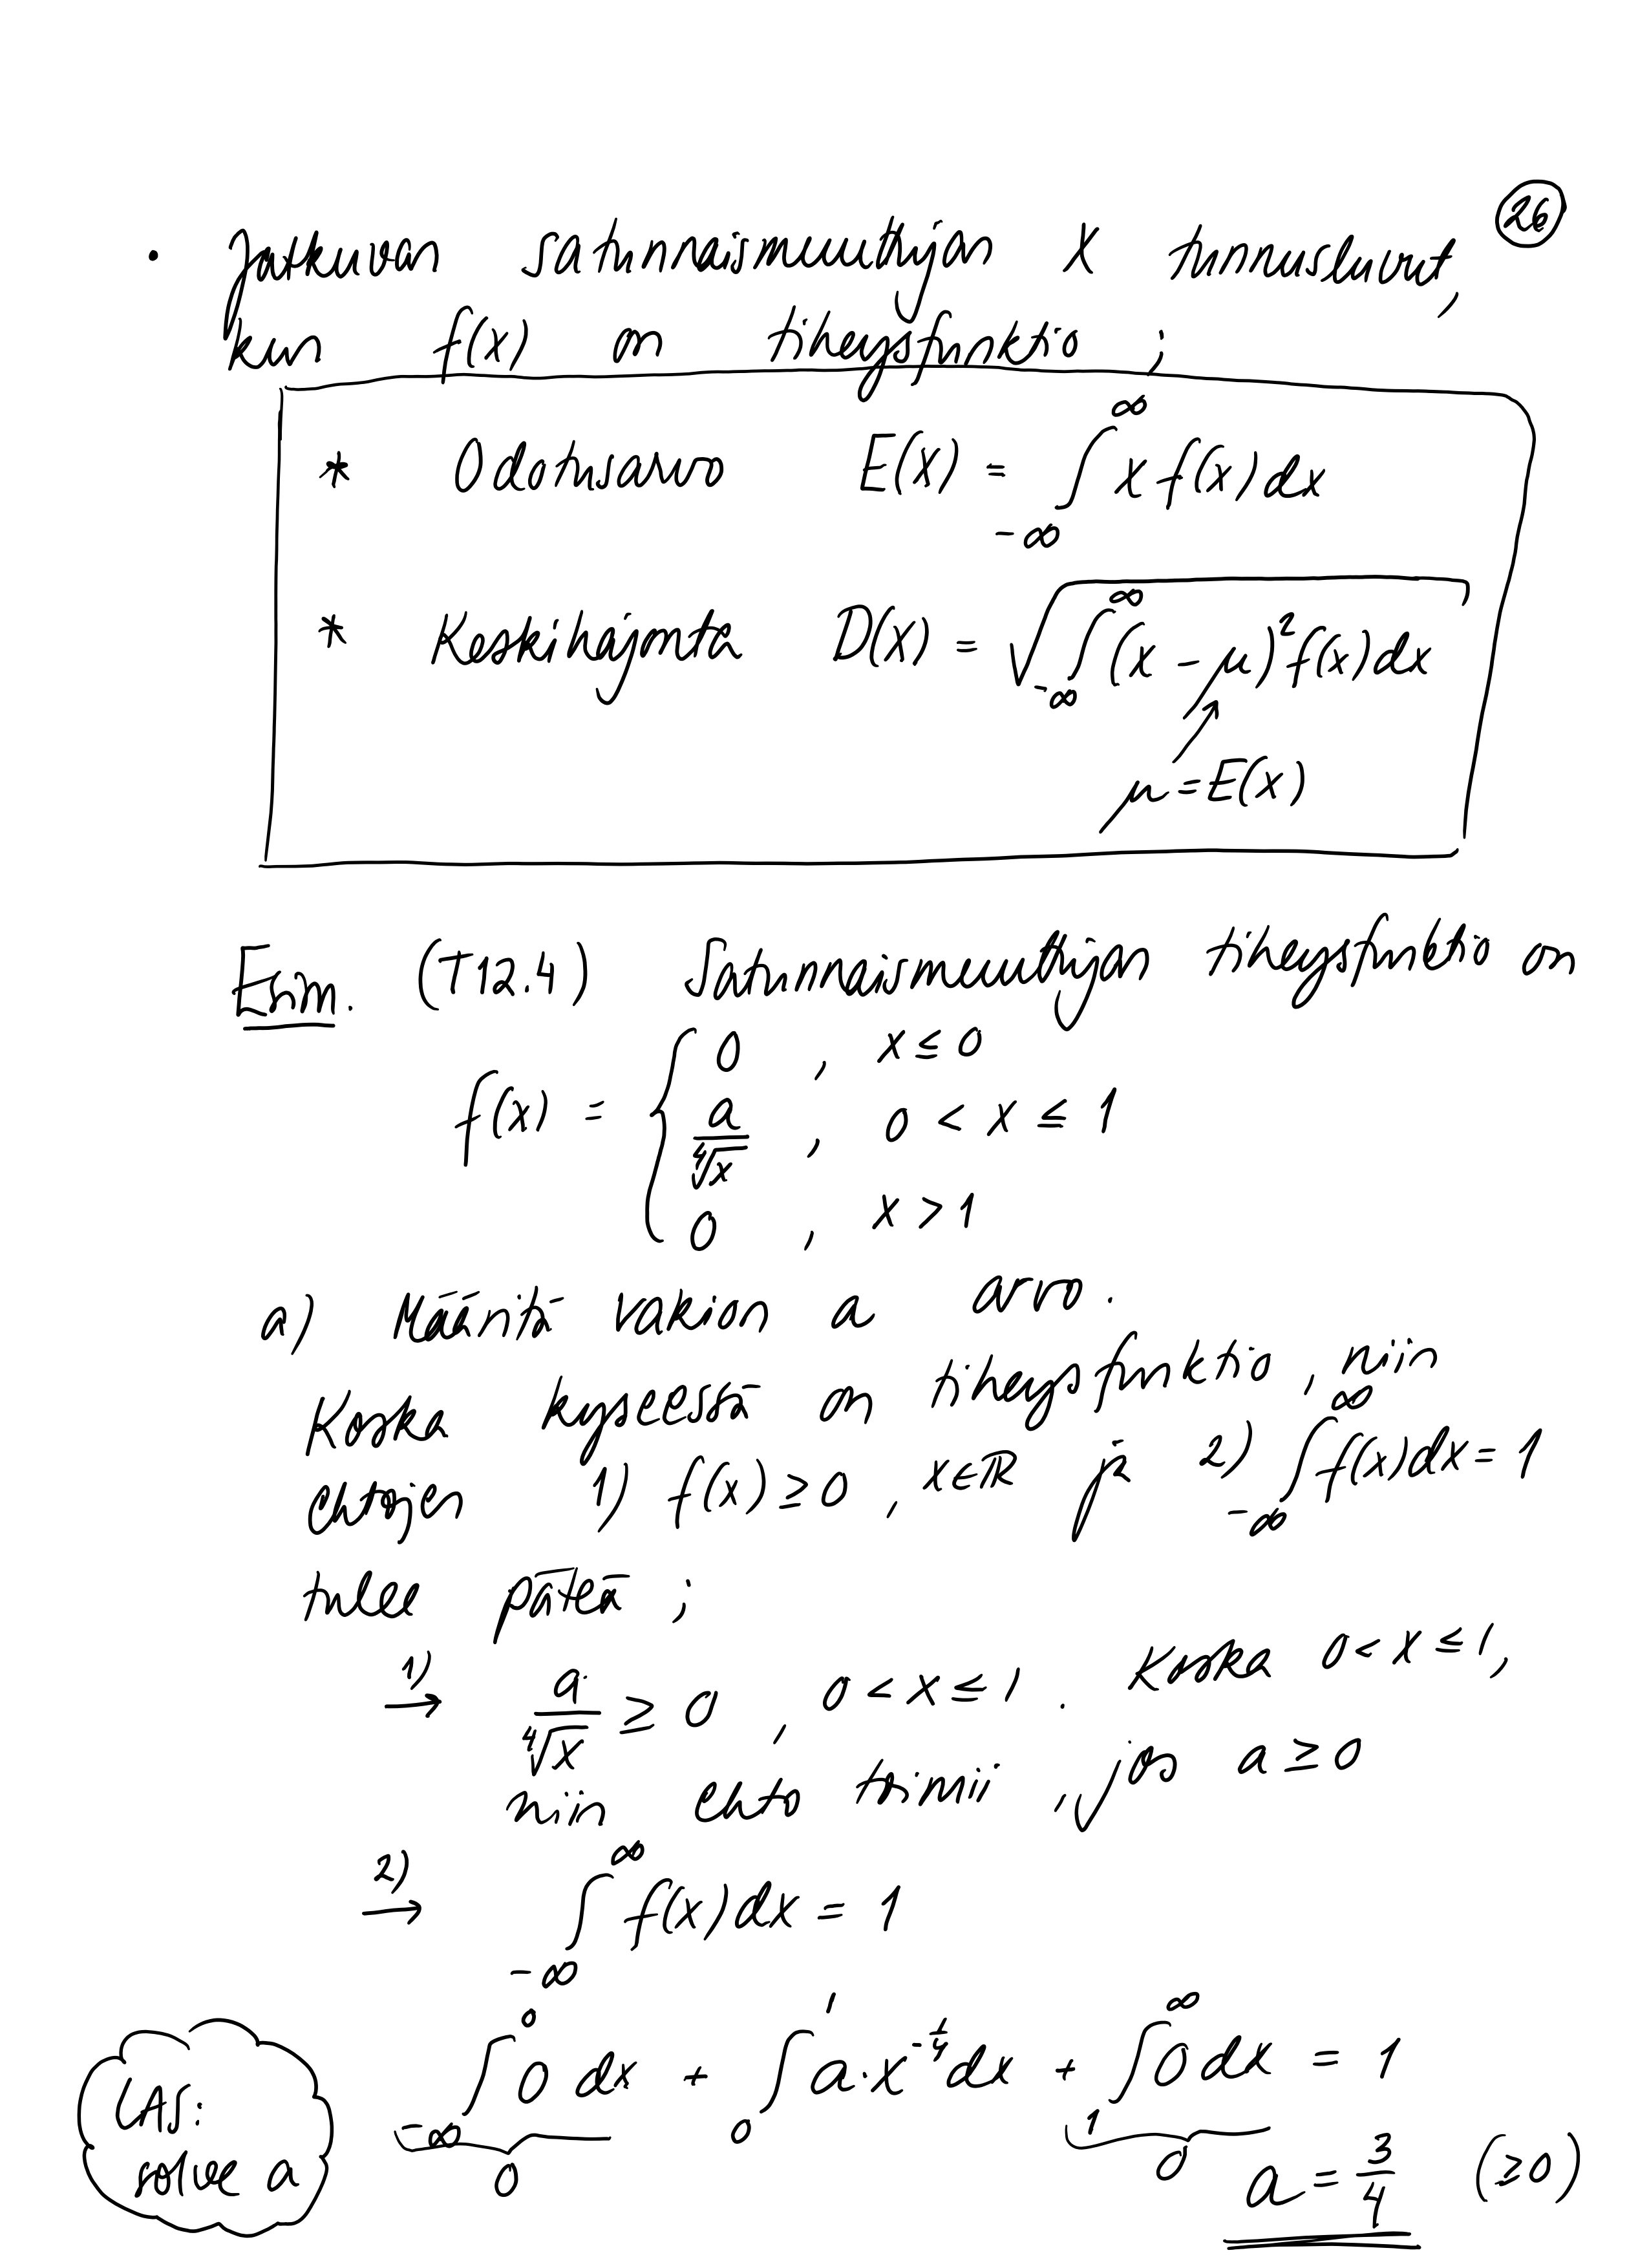 26
• Jatkuvan satunnaismuuttujan X tunnusluvut,
kun f(x) on tiheysfunktio ;
* Odotusarvo E(X) = ∫_{-∞}^{∞} x f(x) dx
* Keskihajonta D(X) = √(∫_{-∞}^{∞} (x - μ)² f(x) dx)
μ = E(X)
Esim. (T12.4) Satunnaismuuttujan tiheysfunktio on
f(x) = { 0 , x ≤ 0
a/∜x , 0 < x ≤ 1
0 , x > 1
a) Määritä vakion a arvo.
Koska kyseessä on tiheysfunktio, niin
ehtojen 1) f(x) ≥ 0 , x∈ℝ ja 2) ∫_{-∞}^{∞} f(x) dx = 1
tulee päteä ;
1) → a/∜x ≥ 0 , 0 < x ≤ 1 . Koska 0 < x ≤ 1,
niin ehto toimii , jos a ≥ 0
2) → ∫_{-∞}^{∞} f(x) dx = 1
∫_{-∞}^{0} 0 dx + ∫_{0}^{1} a·x^{-1/4} dx + ∫_{1}^{∞} 0 dx = 1
0 0
CAS:
solve a
a = 3/4 (≥0)